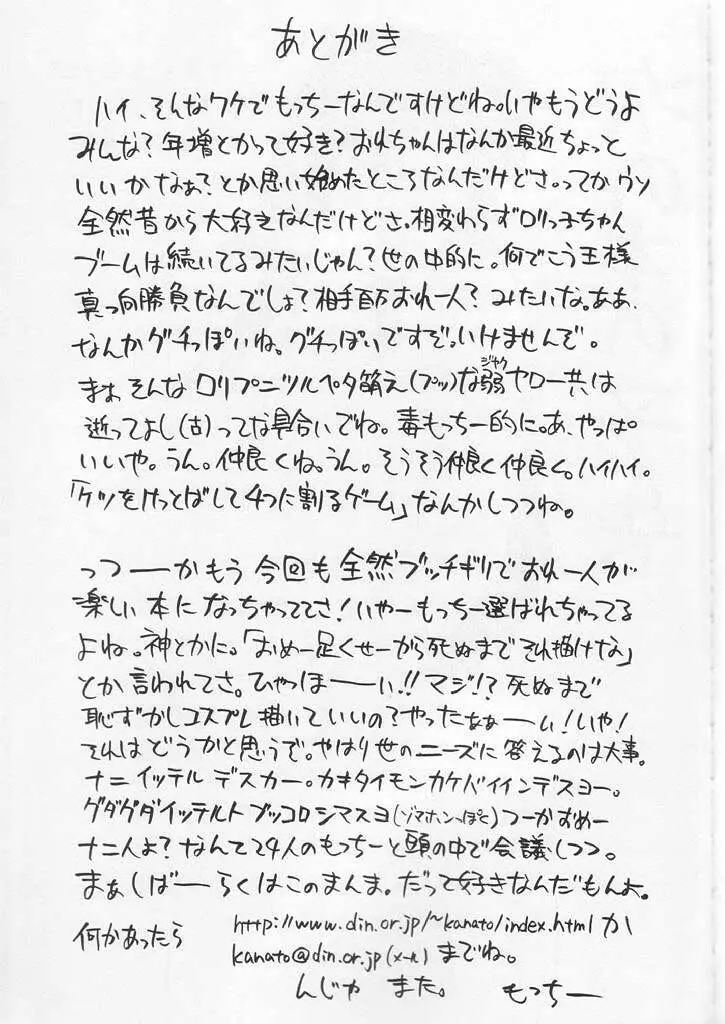 あとがき
ハイ、そんなワケでもっちーなんですけどね。いやもうどうよ
みんな?年増とかって好き?おれちゃんはなんか最近ちょっと
いいかなぁ?とか思い始めたところなんだけどさ。ってかウソ
全然昔から大好きなんだけどさ。相変わらずロリっ子ちゃん
ブームは続いてるみたいじゃん?世の中的に。何でこう王様
真っ向勝負なんでしょ?相手百万おれ一人?みたいな。ああ、
なんかグチっぽいね。グチっぽいですぞ。いけませんぞ。
まぁそんなロリプニツルペタ萌え(プッ)な弱ヤロー共は
ジャク
逝ってよし(古)ってな具合いでね。毒もっちー的に。あ、やっぱ
いいや。うん。仲良くね。うん。そうそう仲良く仲良く。ハイハイ。
「ケツをけっとばして4つに割るゲーム」なんかしつつね。
っつーかもう今回も全然ブッチギリでおれ一人が
楽しい本になっちゃっててさ!いやーもっちー選ばれちゃってる
よね。神とかに。「おめー足くせーから死ぬまでそれ描けな」
とか言われてさ。ひゃっほーーい!!マジ!?死ぬまで
恥ずかしコスプレ描いていいの?やったぁぁーい!いや!
それはどうかと思うで。やはり世のニーズに答えるのは大事。
ナニイッテルデスカー。カキタイモンカケバイインデスヨー。
グダグダイッテルトブッコロシマスヨ(ゾマホンっぽく)つーかおめー
ナニ人よ?なんて24人のもっちーと頭の中で会議しつつ。
まぁしばーらくはこのまんま。だって好きなんだもんよ。
何かあったら http://www.din.or.jp/~kanato/index.html か
kanato@din.or.jp(メール)までね。
んじゃ また。 もっちー